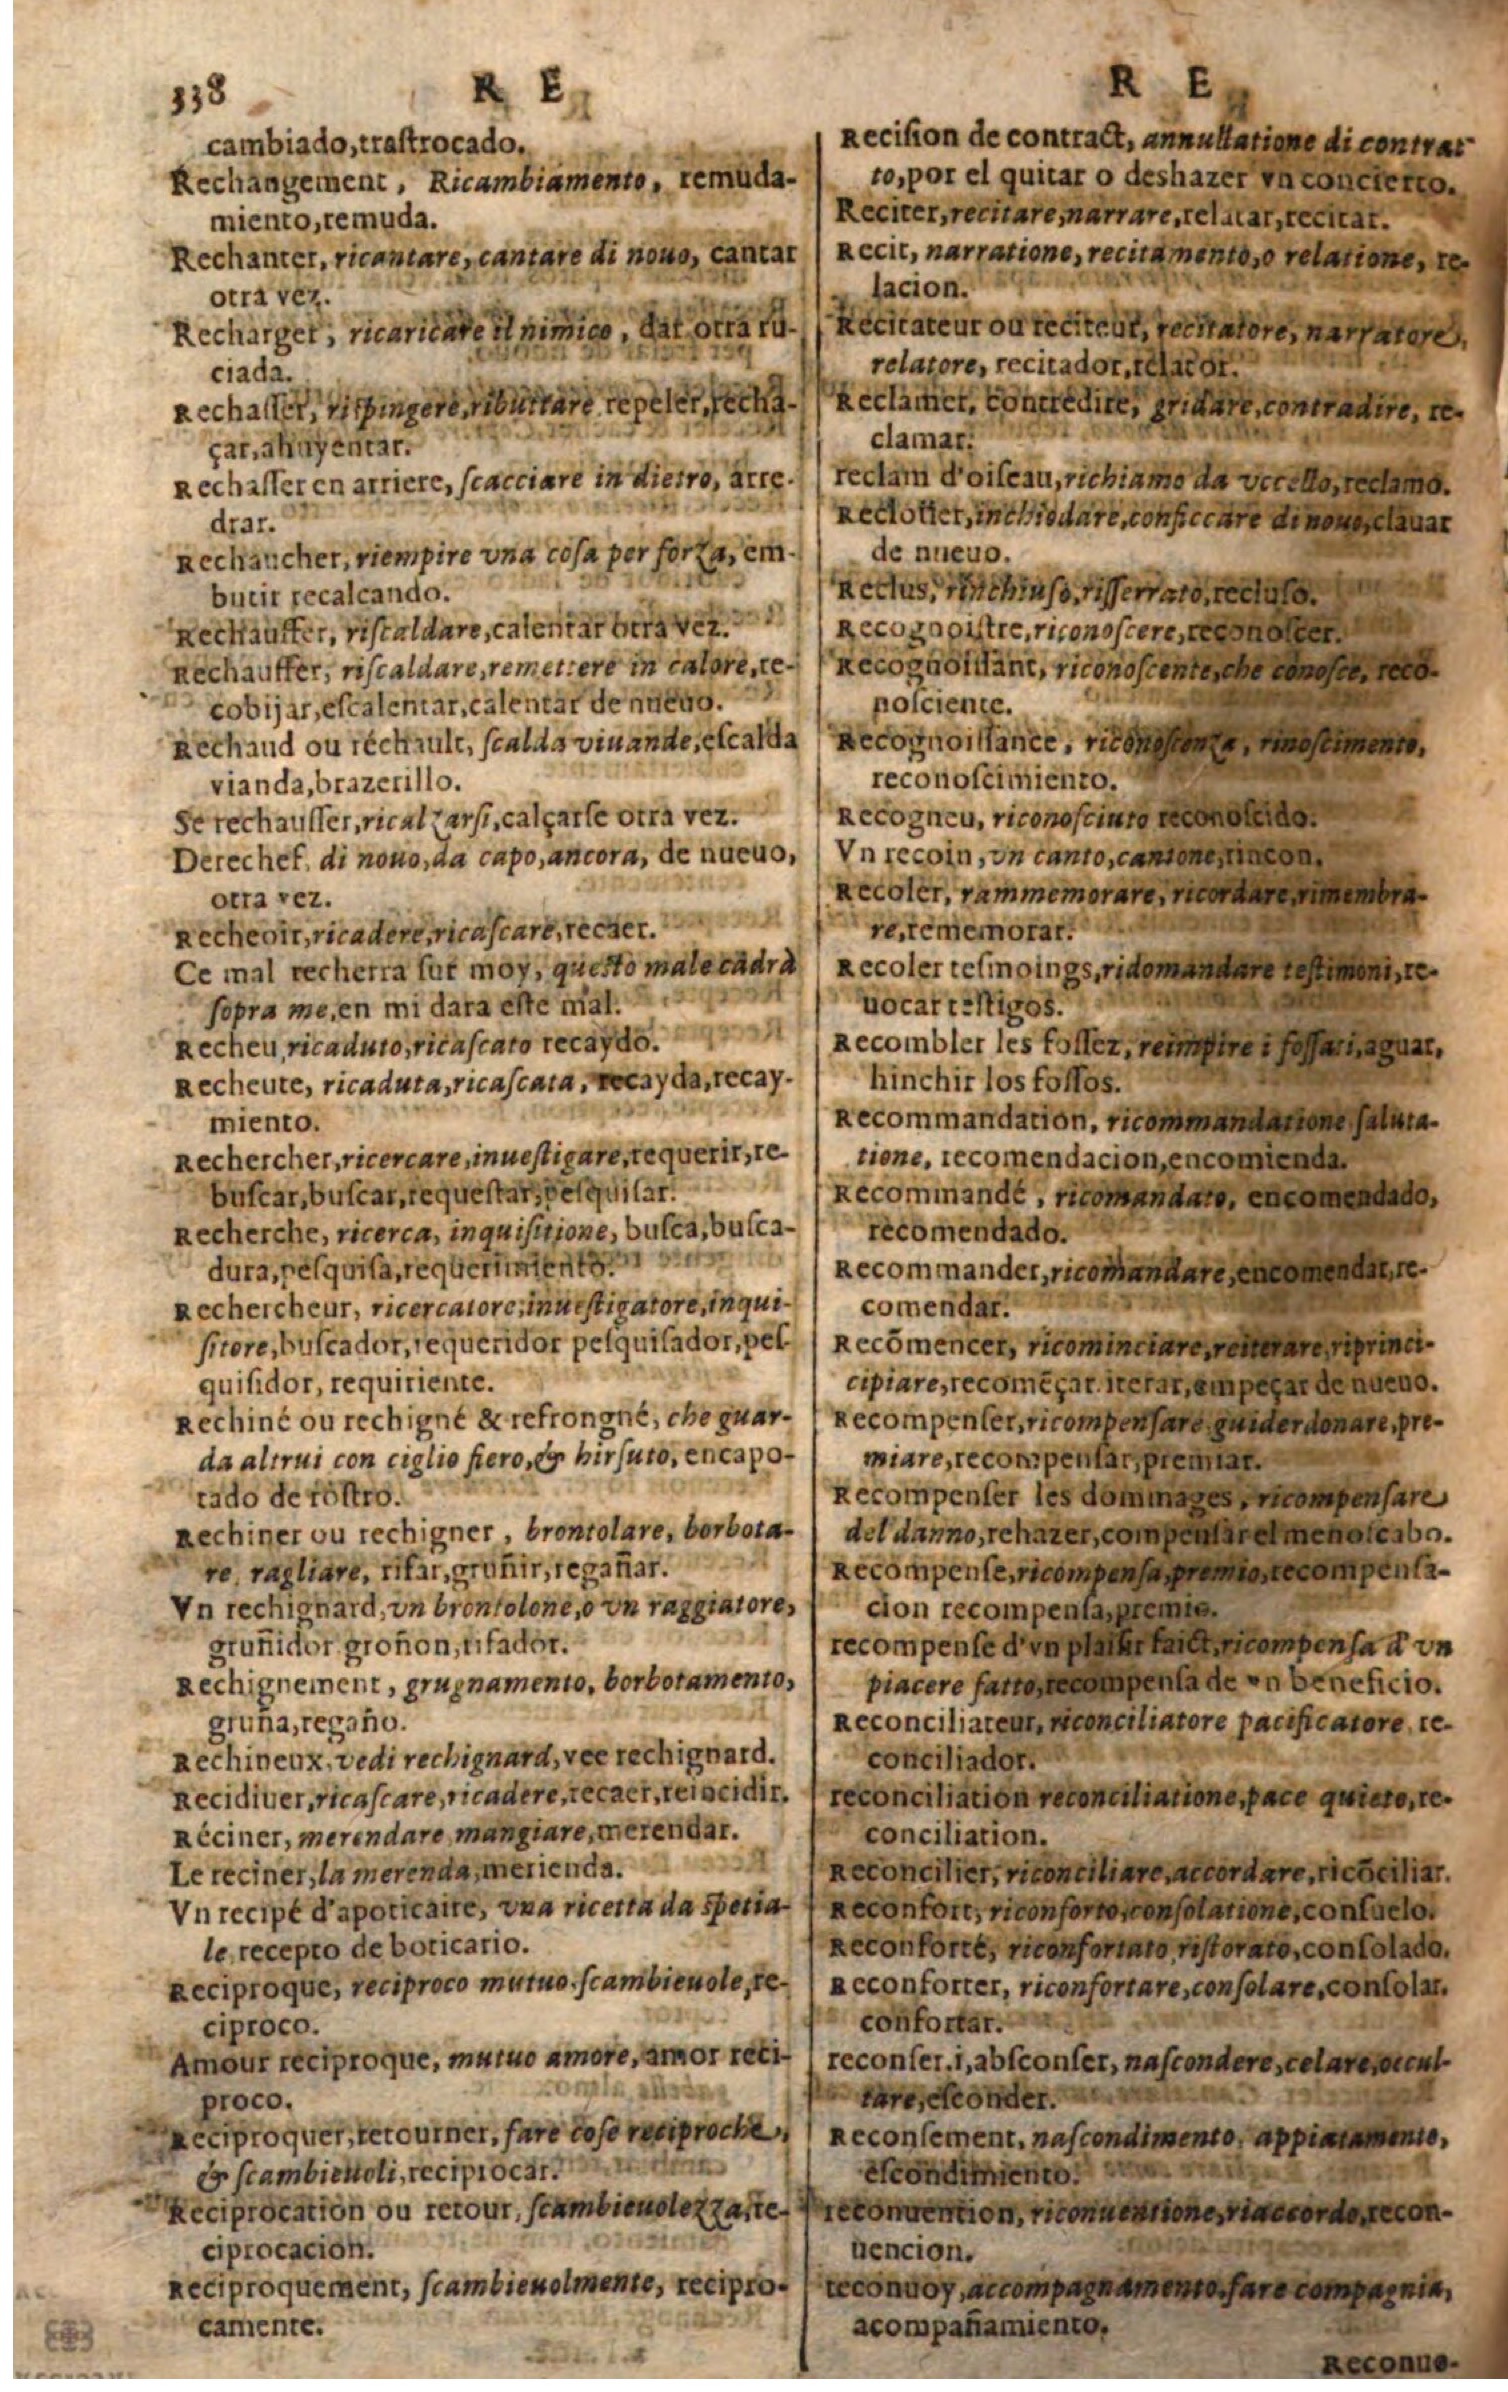 338 R E
cambiado,trastrocado.
Rechangement, Ricambiamento, remuda-
miento,remuda.
Rechanter, ricantare, cantare di nouo, cantar
otra vez.
Recharger, ricaricare il nimico, dar otra ru-
ciada.
Rechasser, rispingere,ributtare repeler,recha-
çar,ahuyentar.
Rechasser en arriere, scacciare in dietro, arre-
drar.
Rechaucher, riempire vna cosa per forza, em-
butir recalcando.
Rechauffer, riscaldare,calentar otra vez.
Rechauffer, riscaldare,remettere in calore,re-
cobijar,escalentar,calentar de nueuo.
Rechaud ou réchault, scalda viuande,escalda
vianda,brazerillo.
Se rechausser,ricalzarsi,calçarse otra vez.
Derechef, di nouo,da capo,ancora, de nueuo,
otra vez.
Recheoir,ricadere,ricascare,recaer.
Ce mal recherra sur moy, questo male cadrà
sopra me,en mi dara este mal.
Recheu,ricaduto,ricascato recaydo.
Recheute, ricaduta,ricascata, recayda,recay-
miento.
Rechercher,ricercare,inuestigare,requerir,re-
buscar,buscar,requestar,pesquisar.
Recherche, ricerca, inquisitione, busca,busca-
dura,pesquisa,requerimiento.
Rechercheur, ricercatore,inuestigatore,inqui-
sitore,buscador,requeridor pesquisador,pes-
quisidor, requiriente.
Rechiné ou rechigné & refrongné, che guar-
da altrui con ciglio fiero,& hirsuto, encapo-
tado de rostro.
Rechiner ou rechigner, brontolare, borbota-
re, ragliare, rifar,gruñir,regañar.
Vn rechignard,vn brontolone,o vn raggiatore,
gruñidor groñon,rifador.
Rechignement, grugnamento, borbotamento,
gruña,regaño.
Rechineux,vedi rechignard,vee rechignard.
Recidiuer,ricascare,ricadere,recaer,reincidir.
Réciner, merendare mangiare,merendar.
Le reciner,la merenda,merienda.
Vn recipé d'apoticaire, vna ricetta da spetia-
le recepto de boticario.
Reciproque, reciproco mutuo.scambieuole,re-
ciproco.
Amour reciproque, mutuo amore, amor reci-
proco.
Reciproquer,retourner, fare cose reciproche,
& scambieuoli,reciprocar.
Reciprocation ou retour, scambieuolezza,re-
ciprocacion.
Reciproquement, scambieuolmente, recipro-
camente.
R E
Recision de contract, annullatione di contrat-
to,por el quitar o deshazer vn concierto.
Reciter,recitare,narrare,relatar,recitar.
Recit, narratione, recitamento,o relatione, re-
lacion.
Recitateur ou reciteur, recitatore, narratore,
relatore, recitador,relator.
Reclamer, contredire, gridare,contradire, re-
clamar.
reclam d'oiseau,richiamo da vccello,reclamo.
Recloüer,inchiodare,conficcare di nouo,clauar
de nueuo.
Reclus, rinchiuso,risserrato,recluso.
Recognoistre,riconoscere,reconoscer.
Recognoissant, riconoscente,che conosce, reco-
nosciente.
Recognoissance, riconoscenza, rinoscimento,
reconoscimiento.
Recogneu, riconosciuto reconoscido.
Vn recoin, vn canto,cantone,rincon.
Recoler, rammemorare, ricordare,rimembra-
re,rememorar.
Recoler tesmoings,ridomandare testimoni,re-
uocar testigos.
Recombler les fossez, reimpire i fossati,aguar,
hinchir los fossos.
Recommandation, ricommandatione saluta-
tione, recomendacion,encomienda.
Recommandé, ricomandato, encomendado,
recomendado.
Recommander,ricomandare,encomendar,re-
comendar.
Recõmencer, ricominciare,reiterare,riprinci-
cipiare,recomẽçar.iterar,empeçar de nueuo.
Recompenser,ricompensare,guiderdonare,pre-
miare,recompensar,premiar.
Recompenser les dommages, ricompensare
del danno,rehazer,compensar el menoscabo.
Recompense,ricompensa,premio,recompensa-
cion recompensa,premio.
recompense d'vn plaisir faict,ricompensa d'vn
piacere fatto,recompensa de vn beneficio.
Reconciliateur, riconciliatore pacificatore, re-
conciliador.
reconciliation reconciliatione,pace quiete,re-
conciliation.
Reconcilier, riconciliare,accordare,ricõciliar.
Reconfort, riconforto,consolatione,consuelo.
Reconforté, riconfortato,ristorato,consolado.
Reconforter, riconfortare,consolare,consolar.
confortar.
reconser.i,absconser, nascondere,celare,occul-
tare,esconder.
Reconsement, nascondimento, appiatamento,
escondimiento.
reconuention, riconuentione,riaccordo,recon-
uencion.
reconuoy,accompagnamento.fare compagnia,
acompañamiento.
Reconuo-